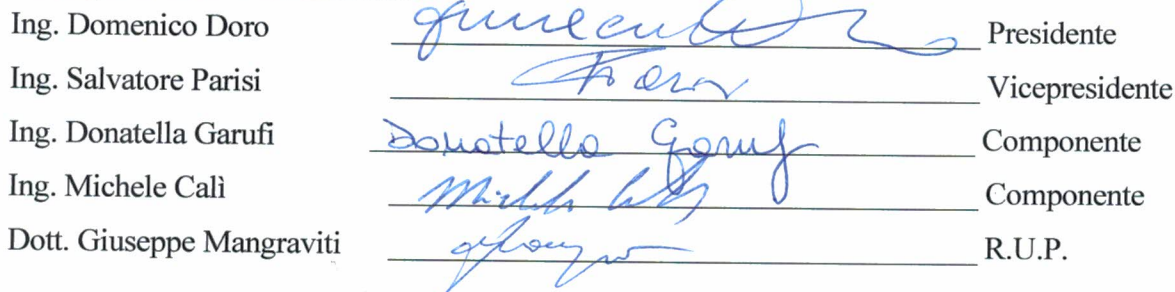 Ing. Domenico Doro Presidente
Ing. Salvatore Parisi Vicepresidente
Ing. Donatella Garufi Donatella Garufi Componente
Ing. Michele Calì Componente
Dott. Giuseppe Mangraviti R.U.P.